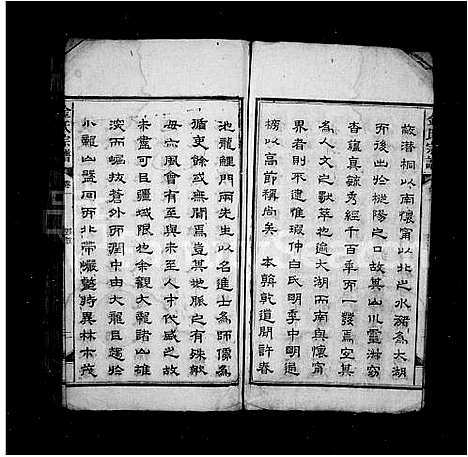 故潛桐以南懷甯以北之水豬為大湖
而後出於樅陽之口故其山川靈淋窈
杳蘊真毓秀經千百年而一發焉宜其
為人文之獸萃也逾大湖而南與懷甯
界者則不逮惟瑕仲白氏明季中明通
榜以高節稱尚矣 本韓乾道間許春
池龍鯉門兩先生以名進士為師儒為
循吏餘或無聞焉豈其地脈之有殊歟
毋六風會有至未至人才代盛之故
未盡可目疆域限也余觀大龍諸山雄
深而崛拔蒼外而潤中由大龍目趨於
小龍山盤回而北帶巖壑時異林木茂
金氏宗譜